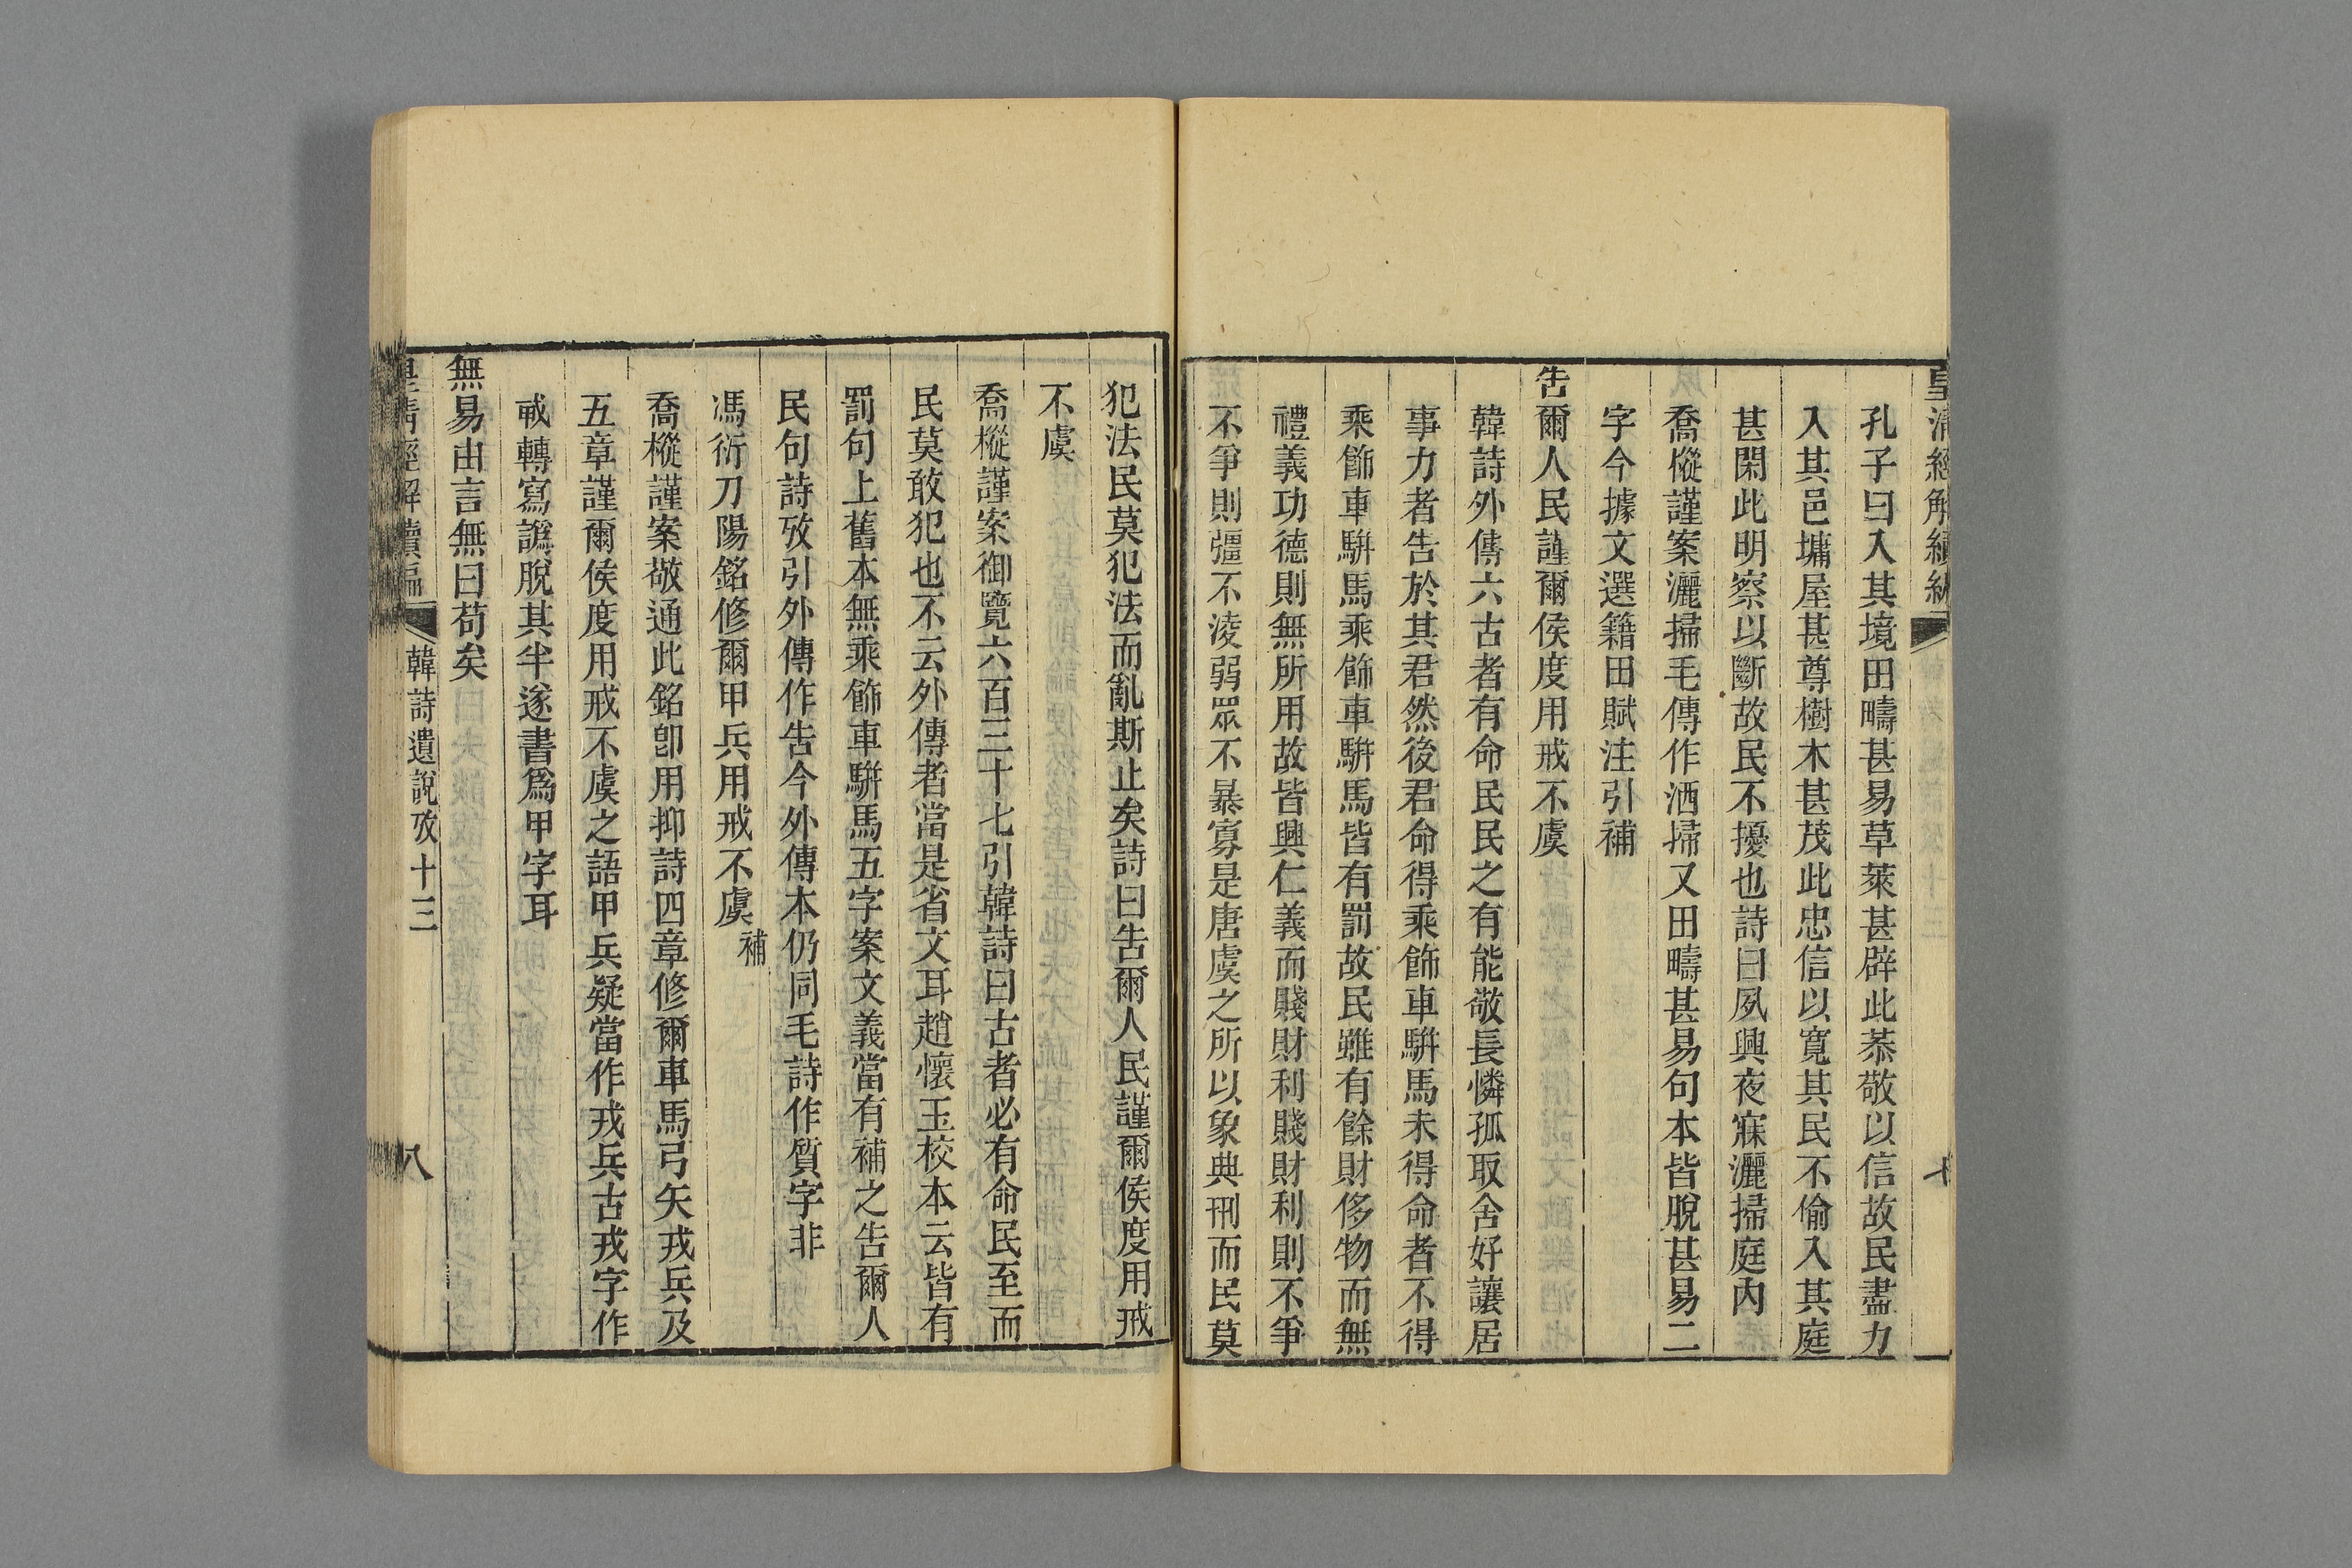 皇清經解續編
七
孔子曰入其境田疇甚易草萊甚辟此恭敬以信故民盡力
入其邑墉屋甚尊樹木甚茂此忠信以寬其民不偷入其庭
甚閑此明察以斷故民不擾也詩曰夙興夜寐灑掃庭內
喬樅謹案灑掃毛傳作洒埽又田疇甚易句本皆脫甚易二
字今據文選籍田賦注引補
告爾人民謹爾侯度用戒不虞
韓詩外傳六古者有命民民之有能敬長憐孤取舍好讓居
事力者告於其君然後君命得乘飾車駢馬未得命者不得
乘飾車駢馬乘飾車駢馬皆有罰故民雖有餘財侈物而無
禮義功德則無所用故皆興仁義而賤財利賤財利則不爭
不爭則彊不淩弱眾不暴寡是唐虞之所以象典刑而民莫
犯法民莫犯法而亂斯止矣詩曰告爾人民謹爾侯度用戒
不虞
喬樅謹案御覽六百三十七引韓詩曰古者必有命民至而
民莫敢犯也不云外傳者當是省文耳趙懷玉校本云皆有
罰句上舊本無乘飾車駢馬五字案文義當有補之告爾人
民句詩攷引外傳作告今外傳本仍同毛詩作質字非
馮衍刀陽銘修爾甲兵用戒不虞補
喬樅謹案敬通此銘卽用抑詩四章修爾車馬弓矢戎兵及
五章謹爾侯度用戒不虞之語甲兵疑當作戎兵古戎字作
𢧢轉寫譌脫其半遂書爲甲字耳
無易由言無曰苟矣
皇清經解續編
韓詩遺說攷十三
八